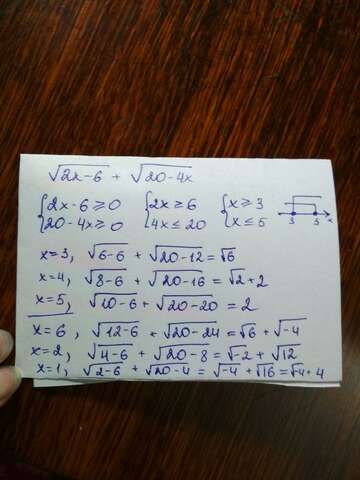 √2x-6 + √20-4x
{2x-6≥0 {2x≥6 {x≥3
{20-4x≥0 {4x≤20 {x≤5 3 5 x
x=3, √6-6 + √20-12=√6
x=4, √8-6 + √20-16=√2+2
x=5, √10-6+√20-20=2
x=6, √12-6 + √20-24=√6+√-4
x=2, √4-6 + √20-8=√-2+√12
x=1, √2-6 + √20-4=√-4+√16=√-4+4